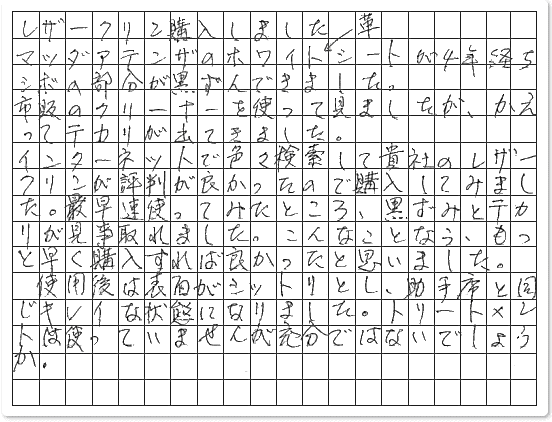 レザークリン購入しました
マツダアテンザのホワイト革シートが4年経ち
シボの部分が黒ずんできました。
市販のクリーナーを使って見ましたが、かえ
ってテカリが出てきました。
インターネットで色々検索して貴社のレザー
クリンが評判が良かったので購入してみまし
た。最早速使ってみたところ、黒ずみとテカ
リが見事取れました。こんなことなら、もっ
と早く購入すれば良かったと思いました。
使用後は表面がシットリとし、助手席と同
じキレイな状態になりました。トリートメン
トは使っていませんが充分ではないでしょう
か。